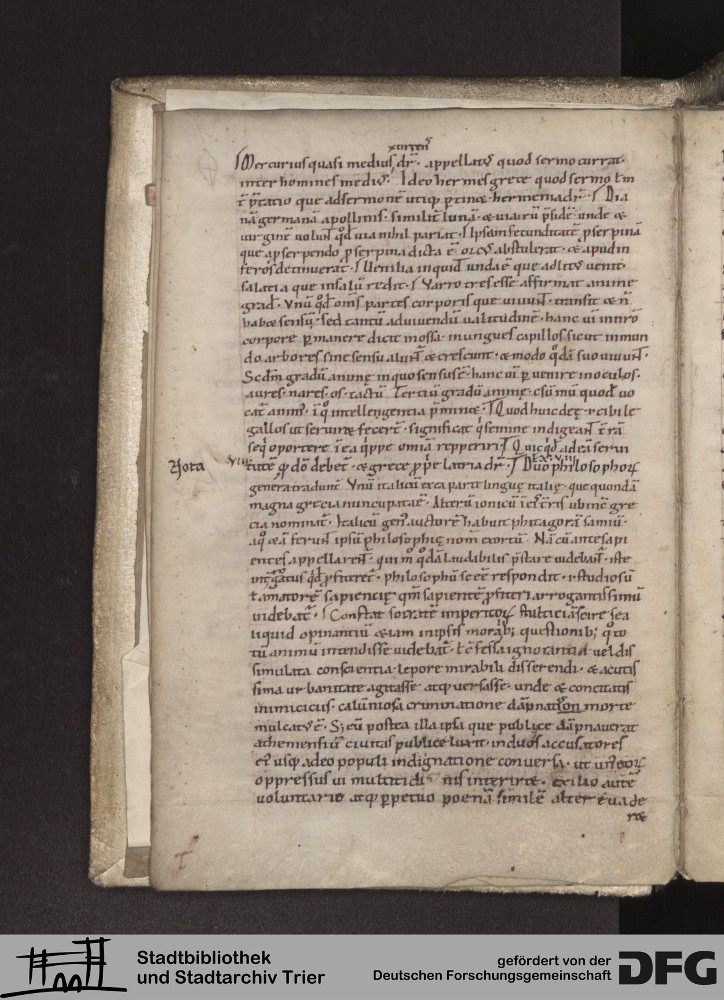 currens
Mercurius quasi medius dr̄. appellat᷒ quod sermo currat.
inter homines medi᷒. Ideo hermes grece quod sermo ł in
t̄ p̄tatio que ad sermonē utiq; ꝑtinæ. hermenia dr̄. Dia
nā germanā apollinis. similit̄ lunā. & viarū p̄sidē. unde &
virginē volun̄t qđ via nihil pariat. Ipsam fecunditatē ꝓserpinā
que a ꝓserpendo ꝓserpina dicta ē. orc᷒ abstulerat. & apud in
feros detinuerat. Uenilia inquid unda ē que ad lit᷒ uenit.
salatia que in salū redit. Varro tres esse affirmat anime
grad᷒. Unū qđ om̄s partes corporis que uiuun̄t. transit & n̄
habeæ sensū. sed tantū ad viuendū ualitudinē. hanc uī in nr̄o
corpore ꝑmanere dicit in ossa. in ungues capillos sicut in mun
do arbores sine sensu alun̄t & crescunt. & modo qđā suo uiuun̄t.
Scd̄m gradū animę in quo sensus ē. hanc uī ꝑuenire in oculos.
aures. nares. os. tactū. Terciū gradū animę. ē sūmū quod uo
cat̄ anim᷒. ī q̊ intellengencia p̄minæ. Quod huic deę
gallos ut seruiræ fecert̄. significat q̇ semine indigean̄t t̄rā
seq̇ oportere ī ea q̇ppe omia repperiri. Quicq̇d ad ea serui
Nota tutē q̄ dō debet̄. & grece ꝓp̄e latria dr̄. Duo philosophorꝝ
genera tradunt̄. Unū italicū ex ea parte lingue italię. que quondā
magna grecia nuncupata ē. Alterū ionicū ī et̄ t̄ris ubi nc̄ gre
cia nominat̄. Italicū gen᷒ auctorē habuit phitagorā samiū.
a q̊ & ā ferun̄t ipsū philosophię nom̄ exortū. Nā cū ante sapi
entes appellaren̄t. qui m̊ q̊dā laudabilis p̄stare uidebant̄. iste
int̄rogatus q̇d ꝓfiteret̄. philosophū se ē ē respondit. i studiosū
ł amatorē sapiencię qm̄ sapientē ꝓfiteri arrogantissimū
uidebat̄. Constat socratē imperitorꝝ stulticiā scire se a
liquid opinantiū etiam in ipsis moralib; questionib; q̊ to
tū animū intendisse uidebat̄. ł ēfessa ignorantia uel dis
simulata conscientia. lepore mirabili disserendi. & acutis
sima urbanitate agitasse atq; uersasse. unde & concitatis
inimiciciis. calūniosa criminatione dāpnatus morte
mulcat᷒ ē. S; eū postea illa ipsa que publice dāpnauerat
atheniensiū ciuitas publice luxit. in duos accusatores
ei᷒ usq; adeo populi indignatione conuersa. ut un᷒ eorꝝ
oppressus ui multitidinis interiræ. exilio autē
voluntario atq; ꝑpetuo poenā similē alter euade
ræ
Stadtbibliothek
und Stadtarchiv Trier
gefördert von der
Deutschen Forschungsgemeinschaft
DFG